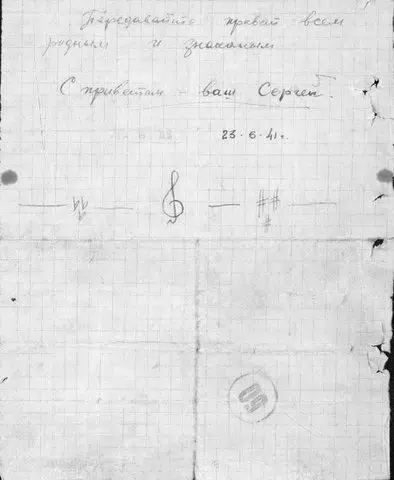 Передавайте привет всем
родным и знакомым
С приветом – ваш Сергей.
23·6·41г.
50